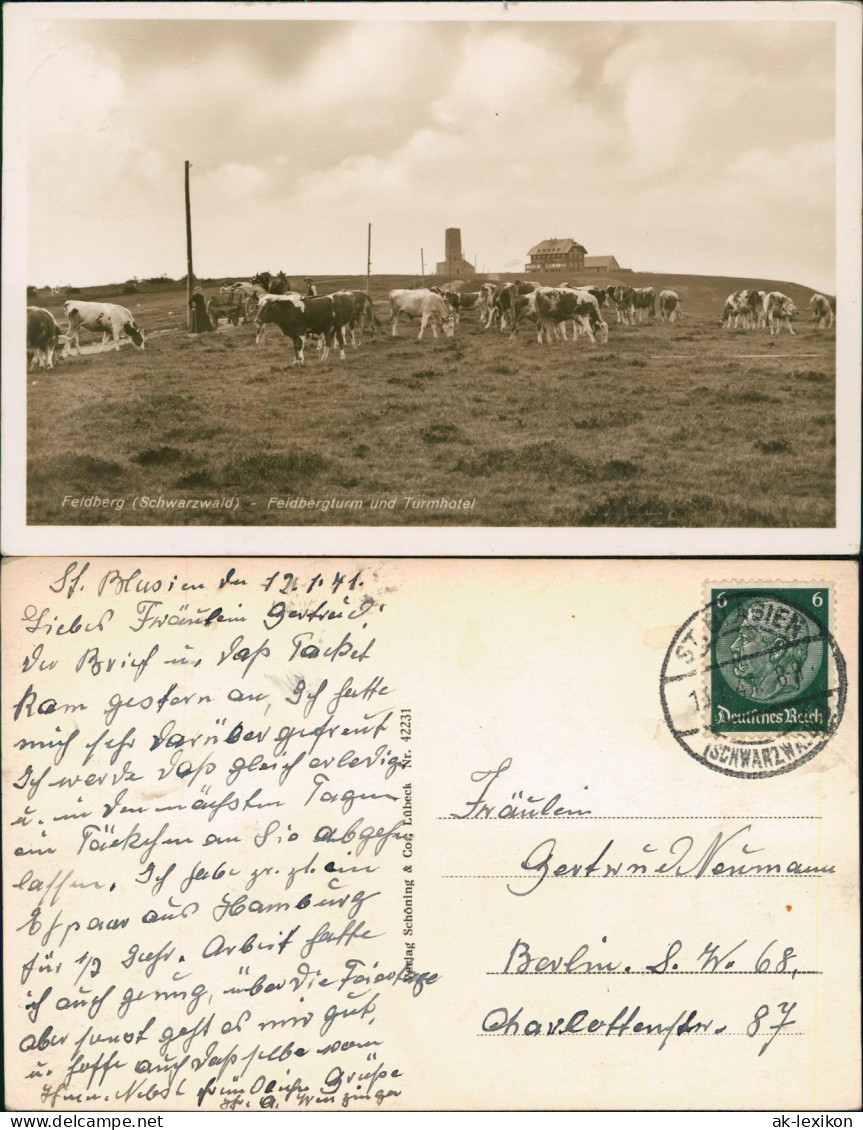 Feldberg (Schwarzwald) - Feldbergturm und Turmhotel
St. Blasien den 12.1.41.
Liebes Fräulein Gertrud!
Der Brief u. daß Packet
kam gestern an, Ich hatte
mich sehr darüber gefreut
Ich werde daß gleich erledigen
u. in den nächsten Tagen
ein Päckchen an Sie abgehen
lassen. Ich habe zr. zt. ein
Ehpaar aus Hamburg
für 1/2 Jahr. Arbeit hatte
ich auch genug, über die Feiertage
aber sonst geht es mir gut,
u. hoffe auch dasselbe vom
Ihnen. Nebst freundliche Grüße
Verlag Schöning & Co., Lübeck Nr. 42231
6 6
Deutsches Reich
ST. BLASIEN
(SCHWARZWALD)
Fräulein
Gertrud Neumann
Berlin. S. W. 68,
Charlottenstr. 87
www.ansichtskarten-lexikon.de
ak-lexikon.de